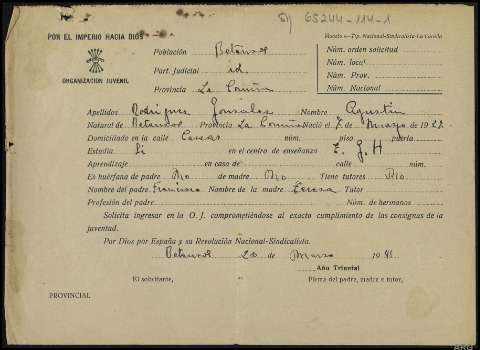 65244-114-1
POR EL IMPERIO HACIA DIOS
ORGANIZACION JUVENIL
Población Betanzos
Part. Judicial id.
Provincia La Coruña
Tip. Nacional-Sindicalista-La Coruña
Núm. orden solicitud
Núm. local
Núm. Prov.
Núm. Nacional
Apellidos Rodriguez Gonzalez Nombre Agustin
Natural de Betanzos Provincia La Coruña Nació el 7 de Marzo de 192
Domiciliado en la calle núm. piso puerta
Estudia Si en el centro de enseñanza E. G. H
Aprendizaje en caso de calle núm.
Es huérfano de padre No de madre No Tiene tutores No
Nombre del padre Francisco Nombre de la madre Teresa Tutor
Profesión del padre Núm. de hermanos
Solicita ingresar en la O. J. comprometiéndose al exacto cumplimiento de las consignas de la
juventud.
Por Dios por España y su Revolución Nacional-Sindicalista.
Betanzos 20 de Marzo 194
Año Triunfal
El solicitante, Firma del padre, madre o tutor,
PROVINCIAL